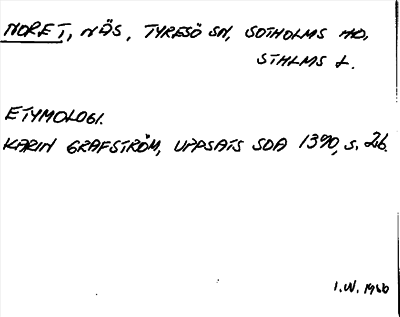 NORET, NÄS, TYRESÖ SN, SOTHOLMS HD,
STHLMS L.
ETYMOLOGI.
KARIN GRAFSTRÖM, UPPSATS SOA 1390, s. 26.